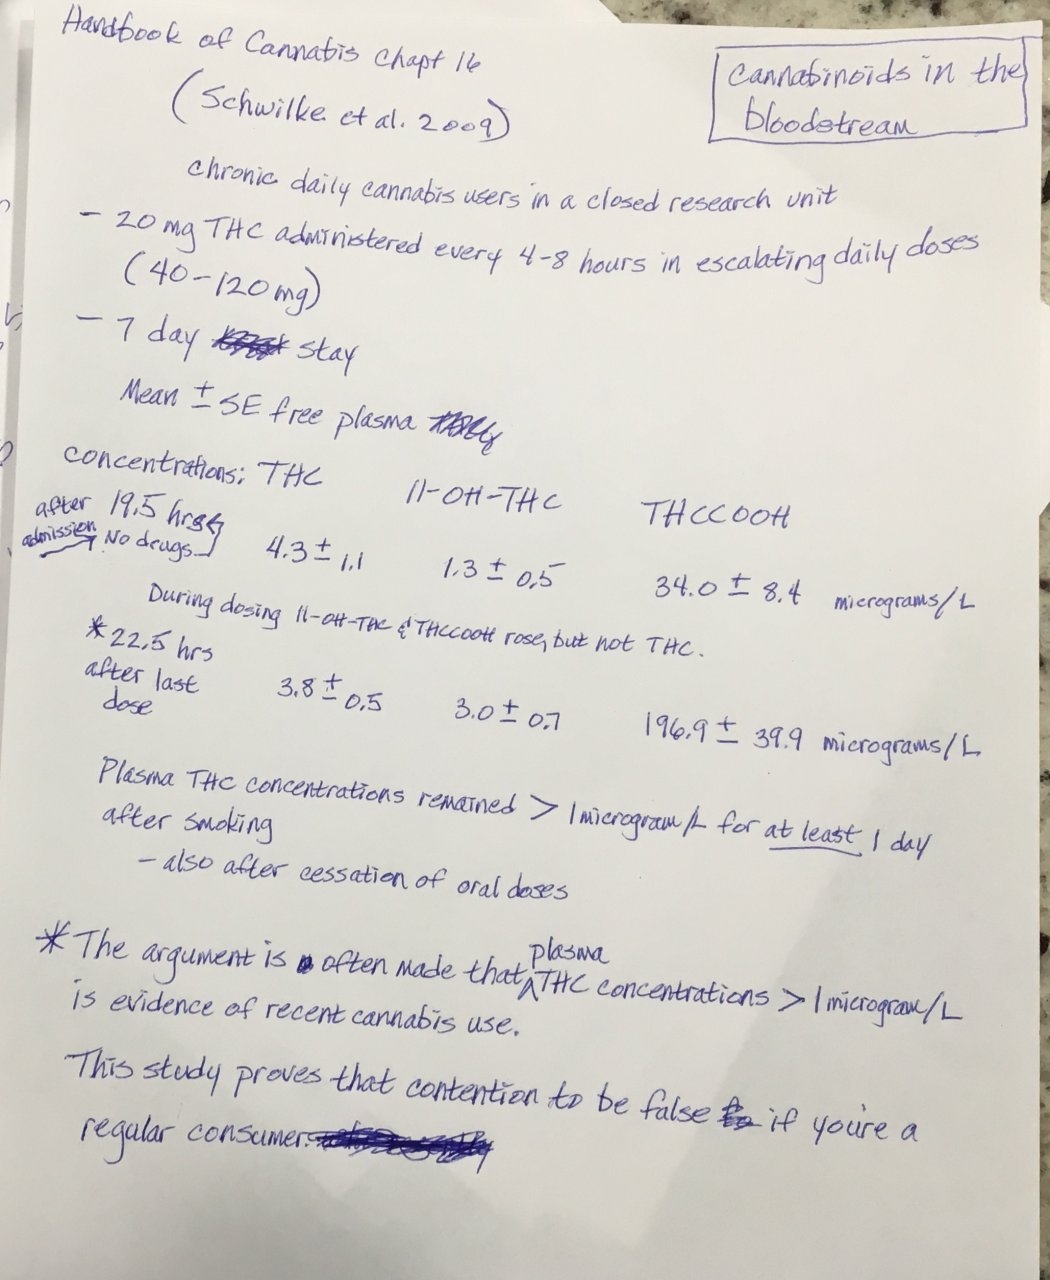 Handbook of Cannabis Chapt 16
(Schwilke et al. 2009)
Cannabinoids in the
bloodstream
chronic daily cannabis users in a closed research unit
- 20 mg THC administered every 4-8 hours in escalating daily doses
(40-120 mg)
- 7 day stay
Mean ± SE free plasma
concentrations: THC 11-OH-THC THCCOOH
after 19.5 hrs
admission No drugs
4.3 ± 1.1 1.3 ± 0.5 34.0 ± 8.4 micrograms/L
During dosing 11-OH-THC & THCCOOH rose, but not THC.
* 22.5 hrs
after last
dose
3.8 ± 0.5 3.0 ± 0.7 196.9 ± 39.9 micrograms/L
Plasma THC concentrations remained > 1 microgram/L for at least 1 day
after smoking
- also after cessation of oral doses
* The argument is often made that plasma THC concentrations > 1 microgram/L
is evidence of recent cannabis use.
This study proves that contention to be false if you're a
regular consumer.